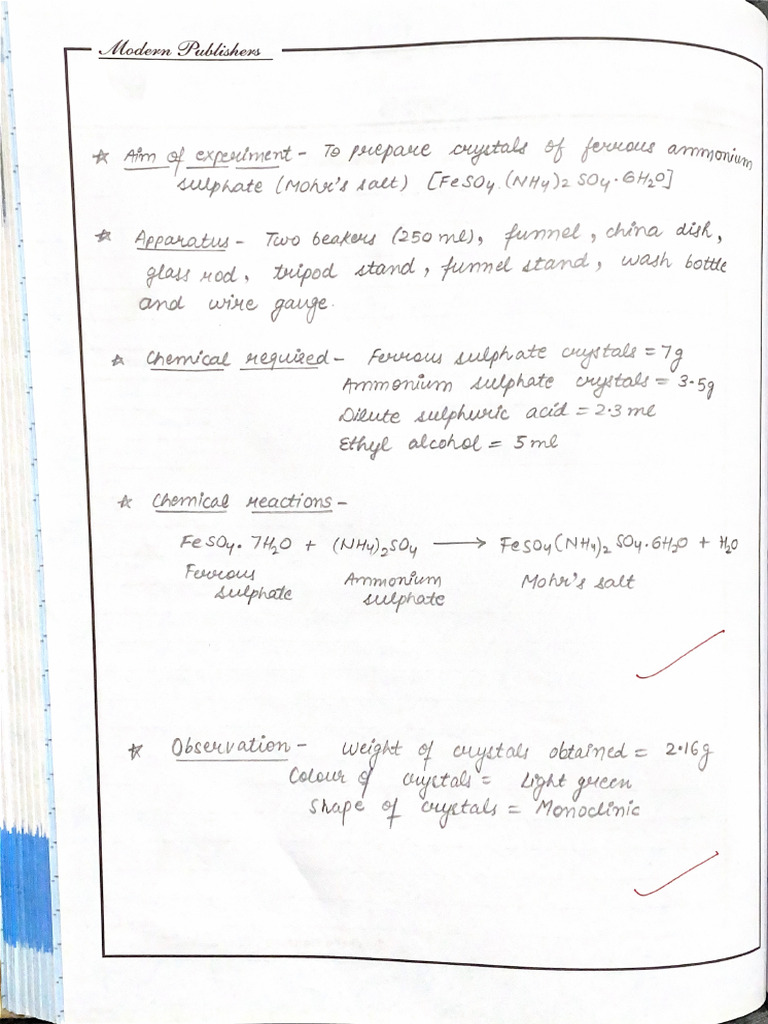 Modern Publishers
☆ Aim of experiment - To prepare crystals of ferrous ammonium
sulphate (Mohr's salt) [FeSO4.(NH4)2 SO4.6H2O]
☆ Apparatus - Two beakers (250 ml), funnel, china dish,
glass rod, tripod stand, funnel stand, wash bottle
and wire gauge.
☆ Chemical required - Ferrous sulphate crystals = 7g
Ammonium sulphate crystals = 3.5g
Dilute sulphuric acid = 2.3 ml
Ethyl alcohol = 5 ml
☆ Chemical reactions -
FeSO4. 7H2O + (NH4)2SO4 → FeSO4(NH4)2 SO4.6H2O + H2O
Ferrous sulphate Ammonium sulphate Mohr's salt
☆ Observation - Weight of crystals obtained = 2.16g
Colour of crystals = Light green
Shape of crystals = Monoclinic